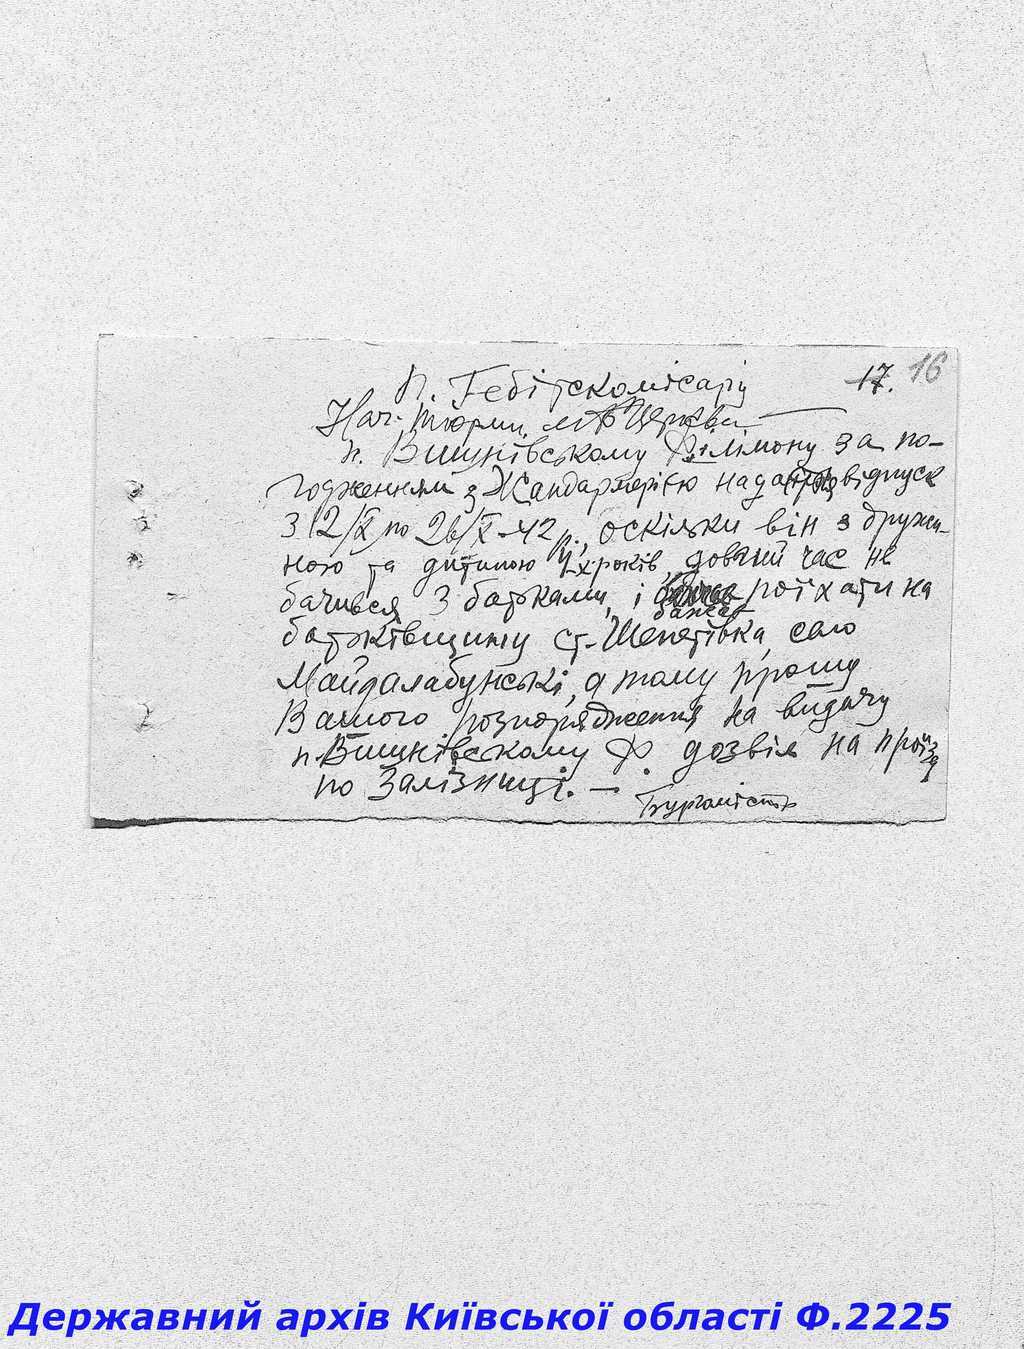 17. 16
П. Гебітскомісару
Нач. тюрми м. Б Церкви
п. Вишнівському Філімону за по-
годженням з Жандармерією надано відпуск
з 12/X по 26/X-42 р., оскільки він з дружи-
ною та дитиною 4х років, довгий час не
бачився з батьками, і бажає поїхати на
батьківщину ст. Шепетівка, село
Майдалабунські, а тому прошу
Вашого розпорядження на видачу
п. Вишнівському Ф. дозвіл на проїзд
по Залізниці. —
Бургомістр
Державний архів Київської області Ф.2225